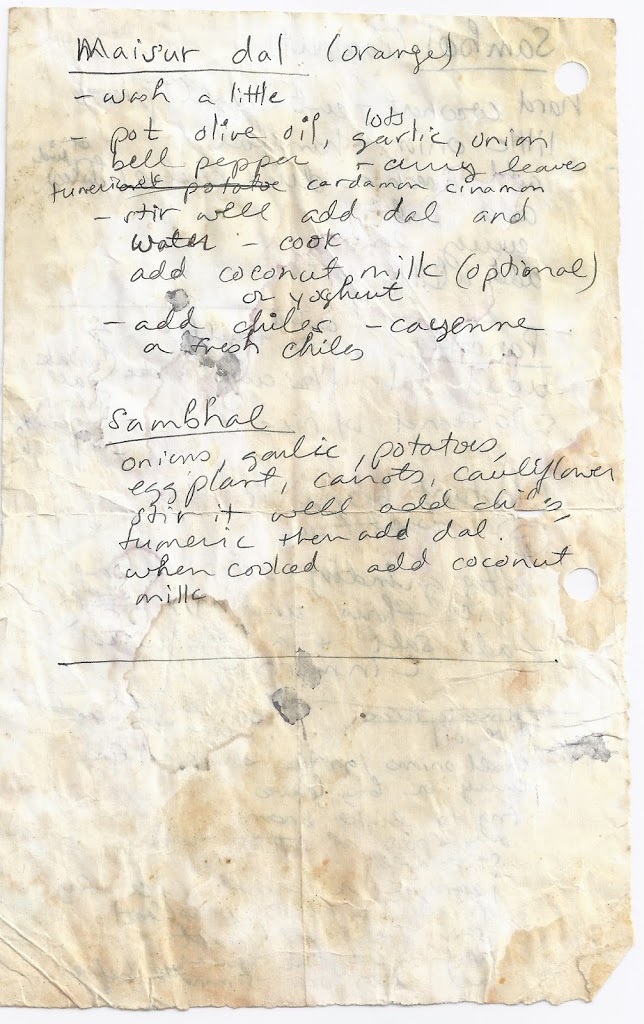 Maisur dal (orange)
- wash a little
- pot olive oil, lots garlic, onion
bell pepper + curry leaves
tumeric potatoe cardamon cinamon
- stir well add dal and
water - cook
add coconut milk (optional)
or yoghurt
- add chiles - cayenne
or fresh chiles
Sambhal
onions, garlic, potatoes,
eggplant, carrots, cauliflower
stir it well add chiles,
tumeric then add dal.
when cooked add coconut
milk